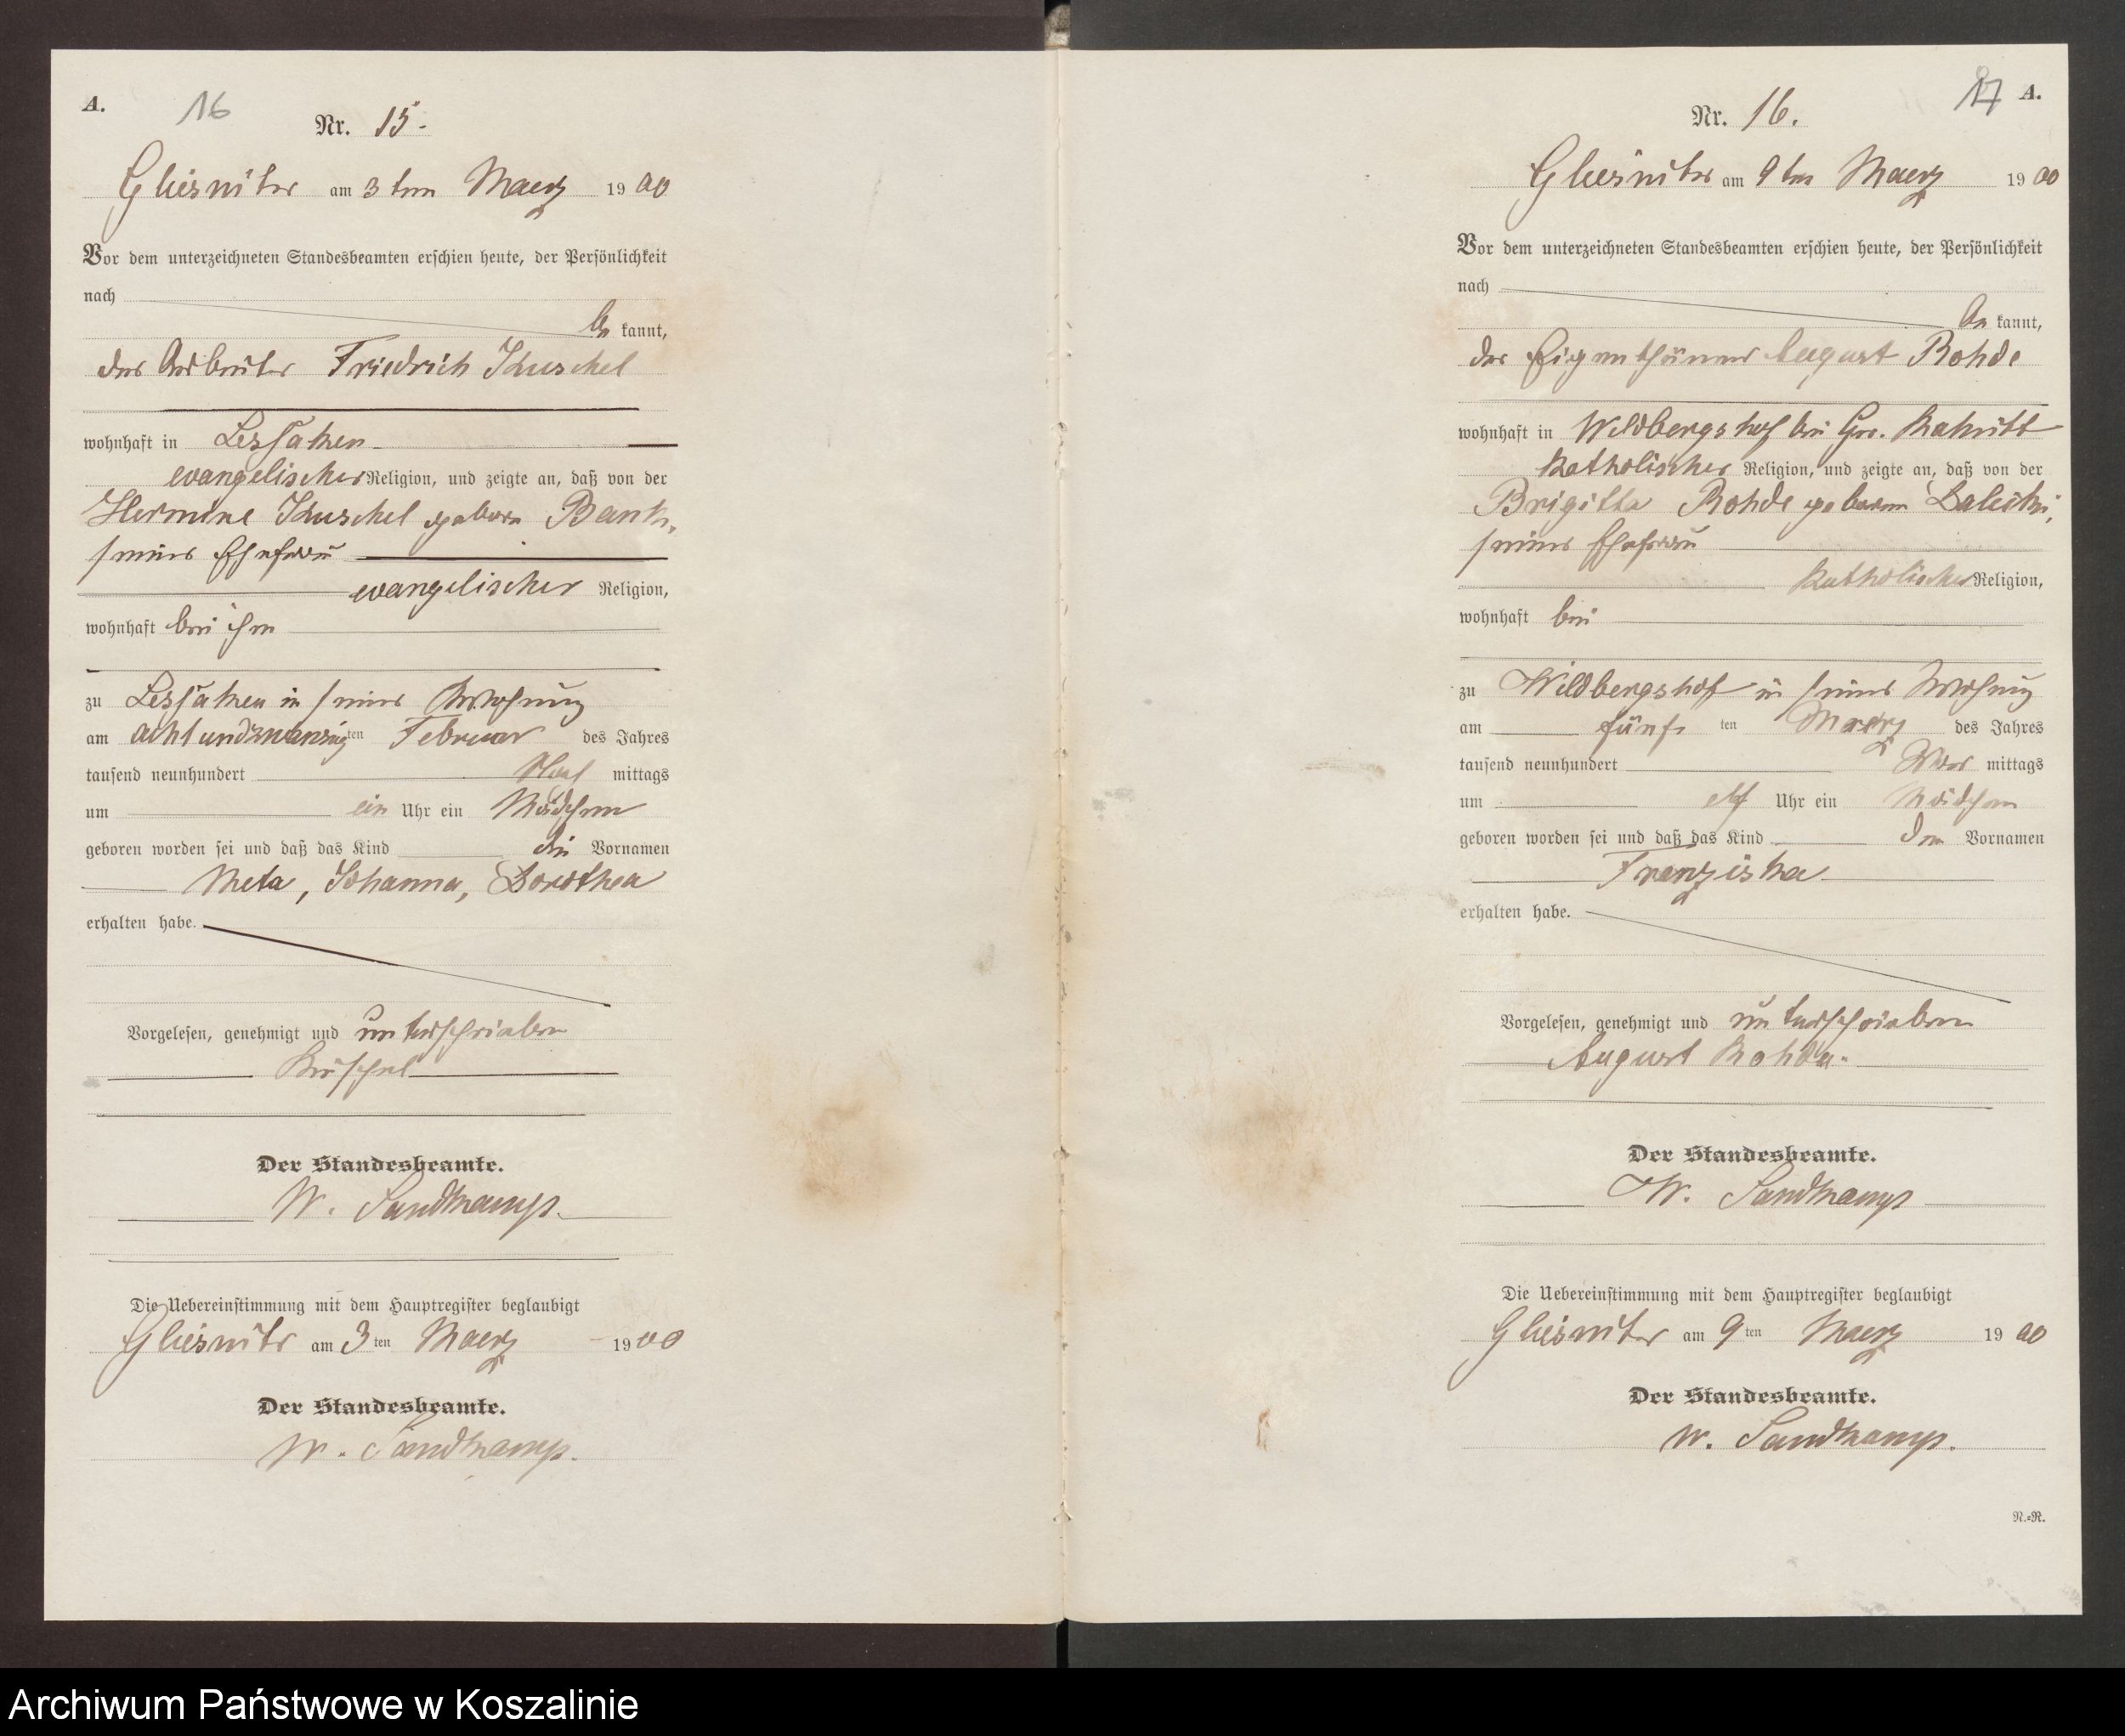 A.
16
Nr. 15.
Gliesnitz am 3ten Maerz 1900
Vor dem unterzeichneten Standesbeamten erschien heute, der Persönlichkeit
nach
be kannt,
der Arbeiter Friedrich Kuschel
wohnhaft in Lessaken
evangelischer Religion, und zeigte an, daß von der
Hermine Kuschel geborn Bank,
seiner Ehefrau
evangelischer Religion,
wohnhaft bei ihm
zu Lessaken in seiner Wohnung
am achtundzwanzigten Februar des Jahres
tausend neunhundert Nach mittags
um ein Uhr ein Mädchen
geboren worden sei und daß das Kind die Vornamen
Meta, Johanna, Dorothea
erhalten habe.
Vorgelesen, genehmigt und unterschrieben
Kuschel
Der Standesbeamte.
W. Sandkamp.
Die Uebereinstimmung mit dem Hauptregister beglaubigt
Gliesnitz am 3ten Maerz 1900
Der Standesbeamte.
W. Sandkamp.
17 A.
Nr. 16.
Gliesnitz am 9ten Maerz 1900
Vor dem unterzeichneten Standesbeamten erschien heute, der Persönlichkeit
nach
be kannt,
der Eigenthümer August Rohde
wohnhaft in Wildbergshof bei Gr. Rakitt
katholischer Religion, und zeigte an, daß von der
Brigitta Rohde geboren
seiner Ehefrau
katholischer Religion,
wohnhaft bei
zu Wildbergshof in seiner Wohnung
am fünf ten Maerz des Jahres
tausend neunhundert Vor mittags
um elf Uhr ein Mädchen
geboren worden sei und daß das Kind den Vornamen
Franziska
erhalten habe.
Vorgelesen, genehmigt und unterschrieben
August Rohde.
Der Standesbeamte.
W. Sandkamp
Die Uebereinstimmung mit dem Hauptregister beglaubigt
Gliesnitz am 9ten Maerz 1900
Der Standesbeamte.
W. Sandkamp.
N.=R.
Archiwum Państwowe w Koszalinie